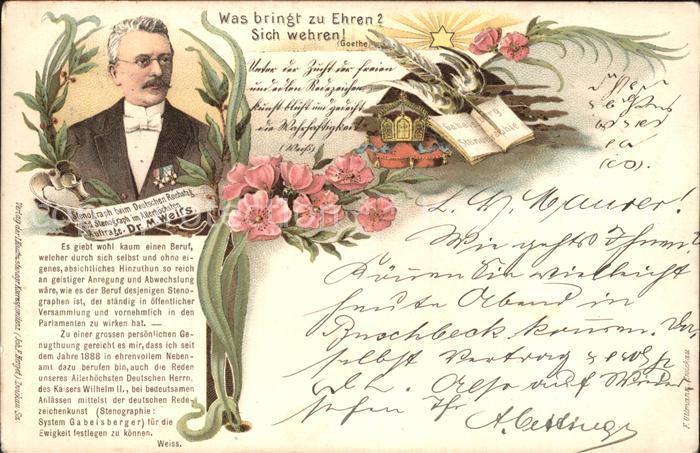 Was bringt zu Ehren?
Sich wehren!
(Goethe)
Unter der Zucht der freien
und ersten Redezeichen-
kunst bleibt und gedeiht
die Wahrhaftigkeit
(Weiß)
Gabelsberg
Stenograph beim Deutschen Reichstag
und Stenograph im Allerhöchsten
Auftrage. Dr. M. Weirs.
Es giebt wohl kaum einen Beruf,
welcher durch sich selbst und ohne ei-
genes, absichtliches Hinzuthun so reich
an geistiger Anregung und Abwechslung
wäre, wie es der Beruf desjenigen Steno-
graphen ist, der ständig in öffentlicher
Versammlung und vornehmlich in den
Parlamenten zu wirken hat. —
Zu einer grossen persönlichen Ge-
nugthuung gereicht es mir, dass ich seit
dem Jahre 1888 in ehrenvollem Neben-
amt dazu berufen bin, auch die Reden
unseres Allerhöchsten Deutschen Herrn,
des Kaisers Wilhelm II., bei bedeutsamen
Anlässen mittelst der deutschen Rede-
zeichenkunst (Stenographie:
System Gabelsberger) für die
Ewigkeit festlegen zu können.
Weiss.
L. H. Maurer!
Wie gehts Ihnen?
Können Sie vielleicht
heute Abend in
Buschbeck kommen. Da-
selbst Vortrag
Also auf Wieder
sehen Ihr
Verlag der Illustr. Stenogr. Korrespondenz (Joh. F. Berger) Zwickau Sa.
F. Ullmann, Zwickau